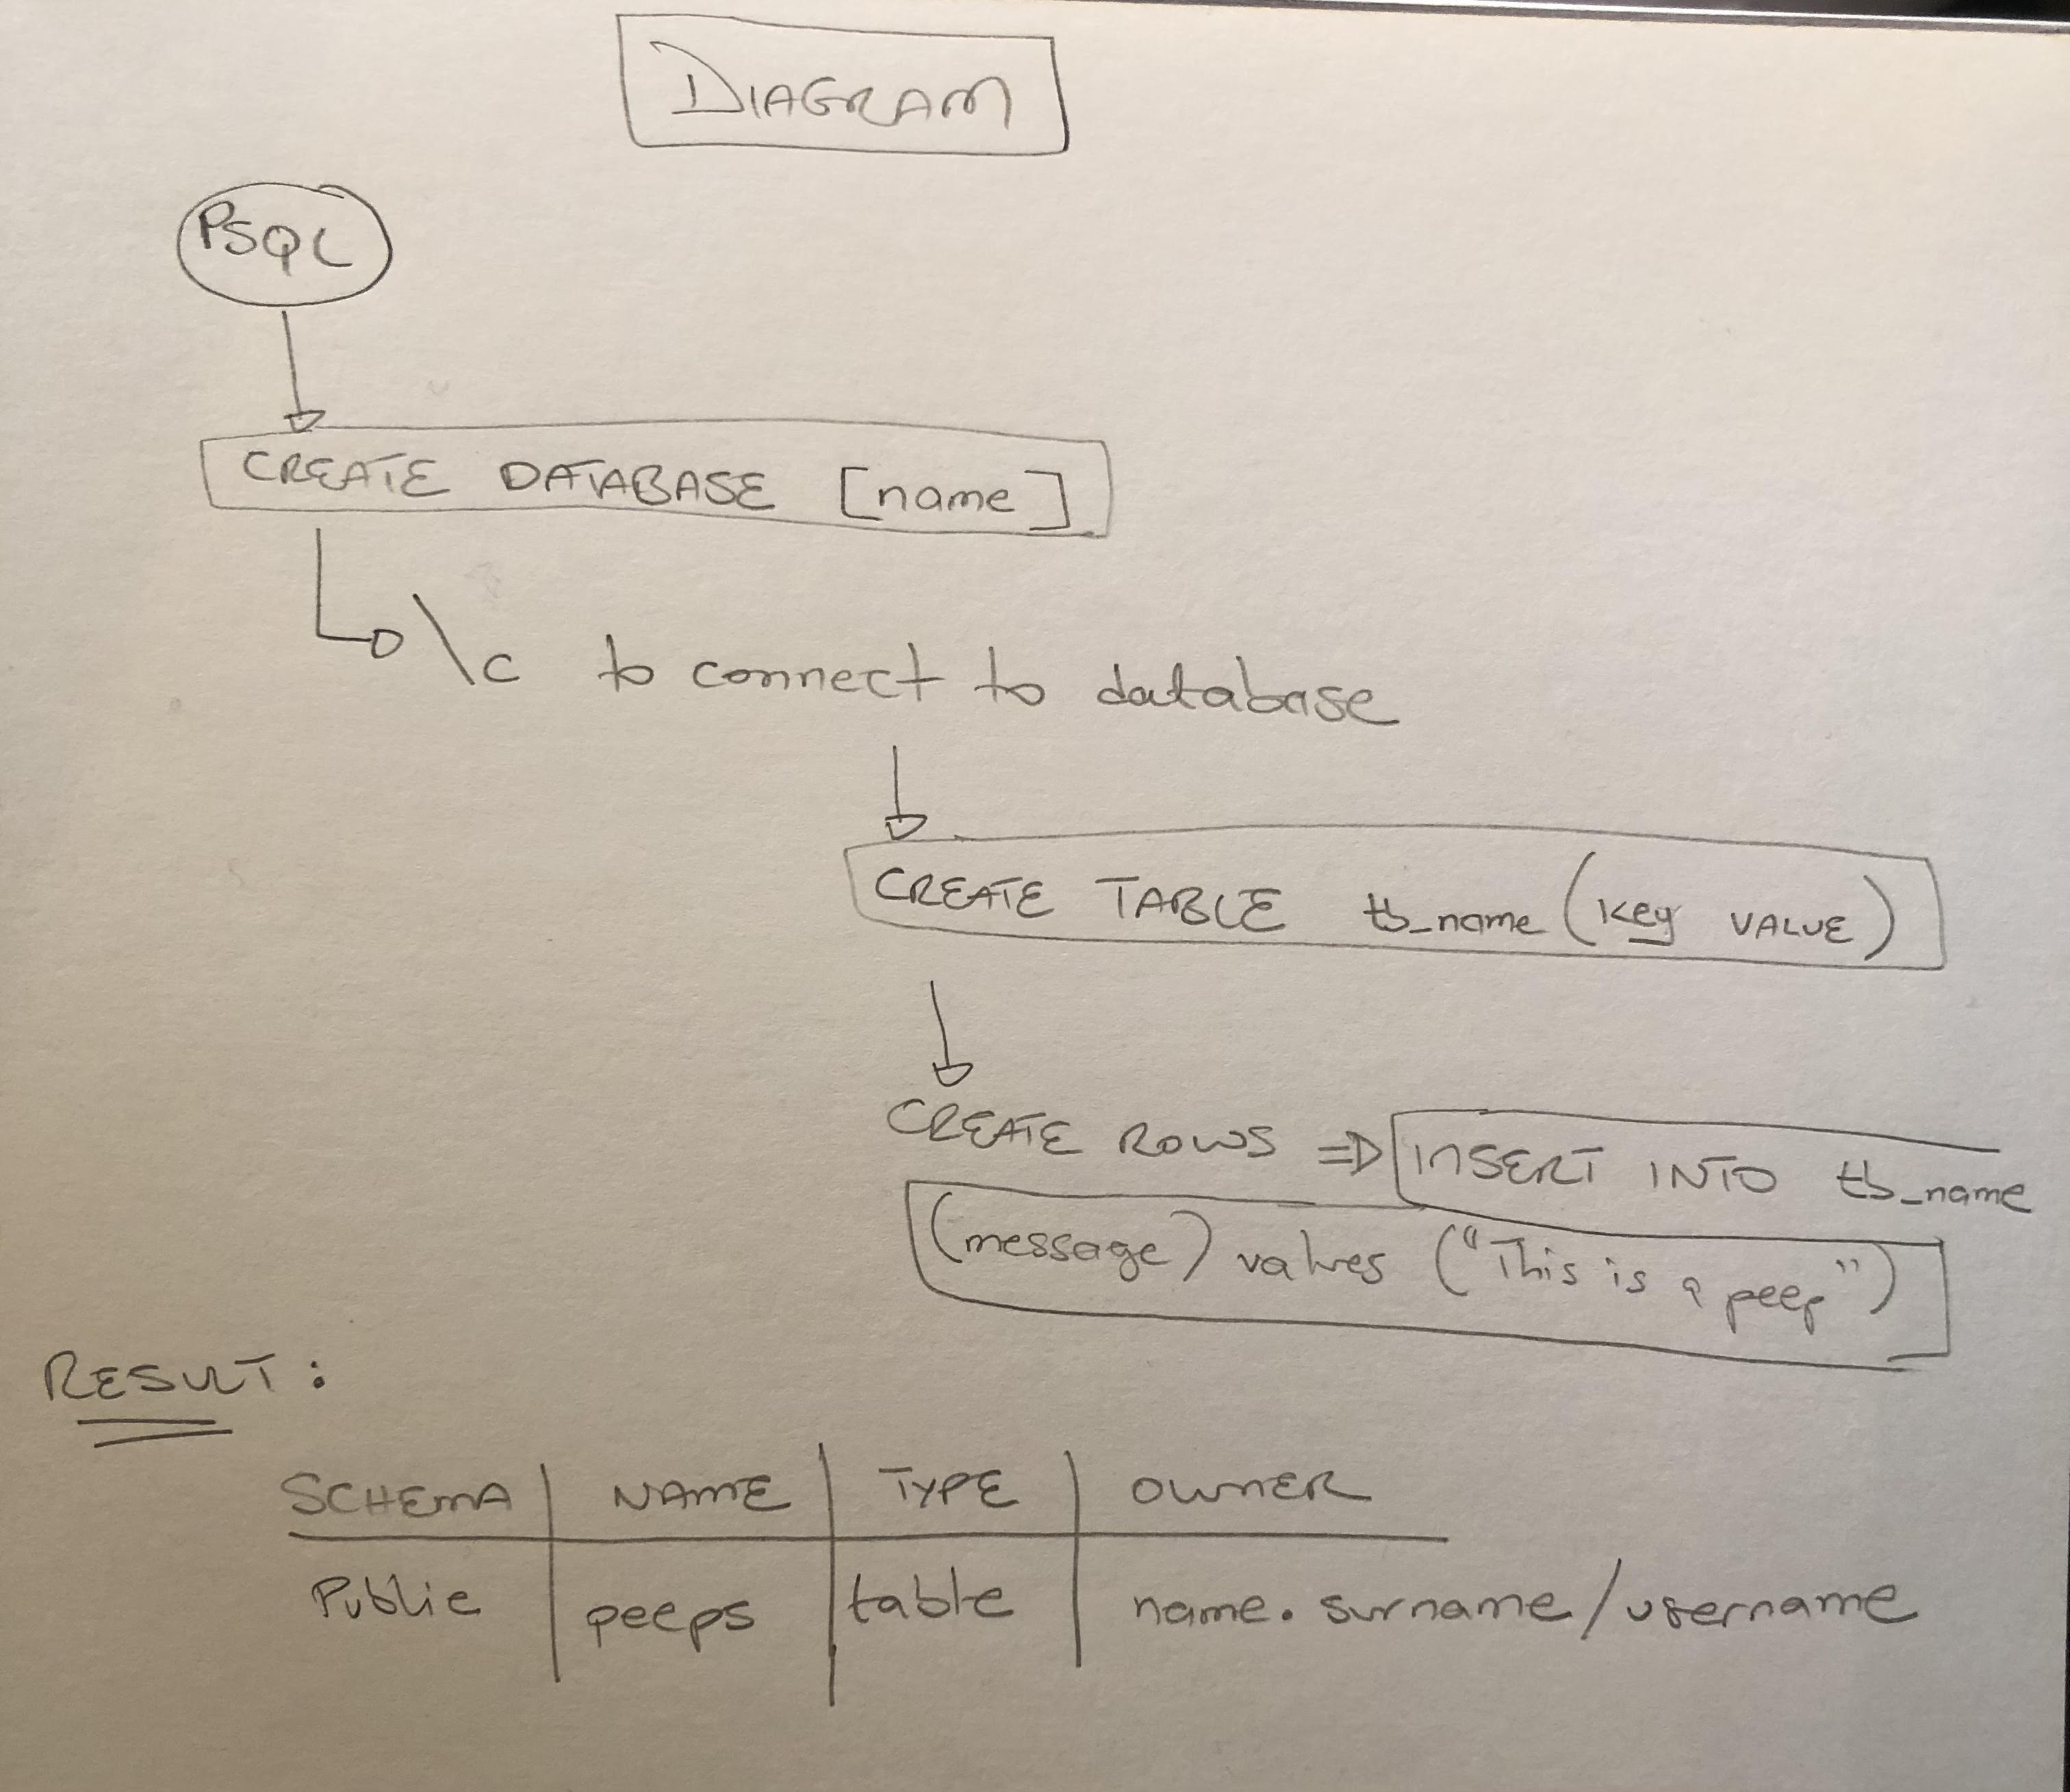 DIAGRAM
PSQL
CREATE DATABASE [name]
\c to connect to database
CREATE TABLE tb_name (key VALUE)
CREATE ROWS => INSERT INTO tb_name
(message) values ("This is a peep")
RESULT:
SCHEMA | NAME | TYPE | OWNER
Public | peeps | table | name.surname/username